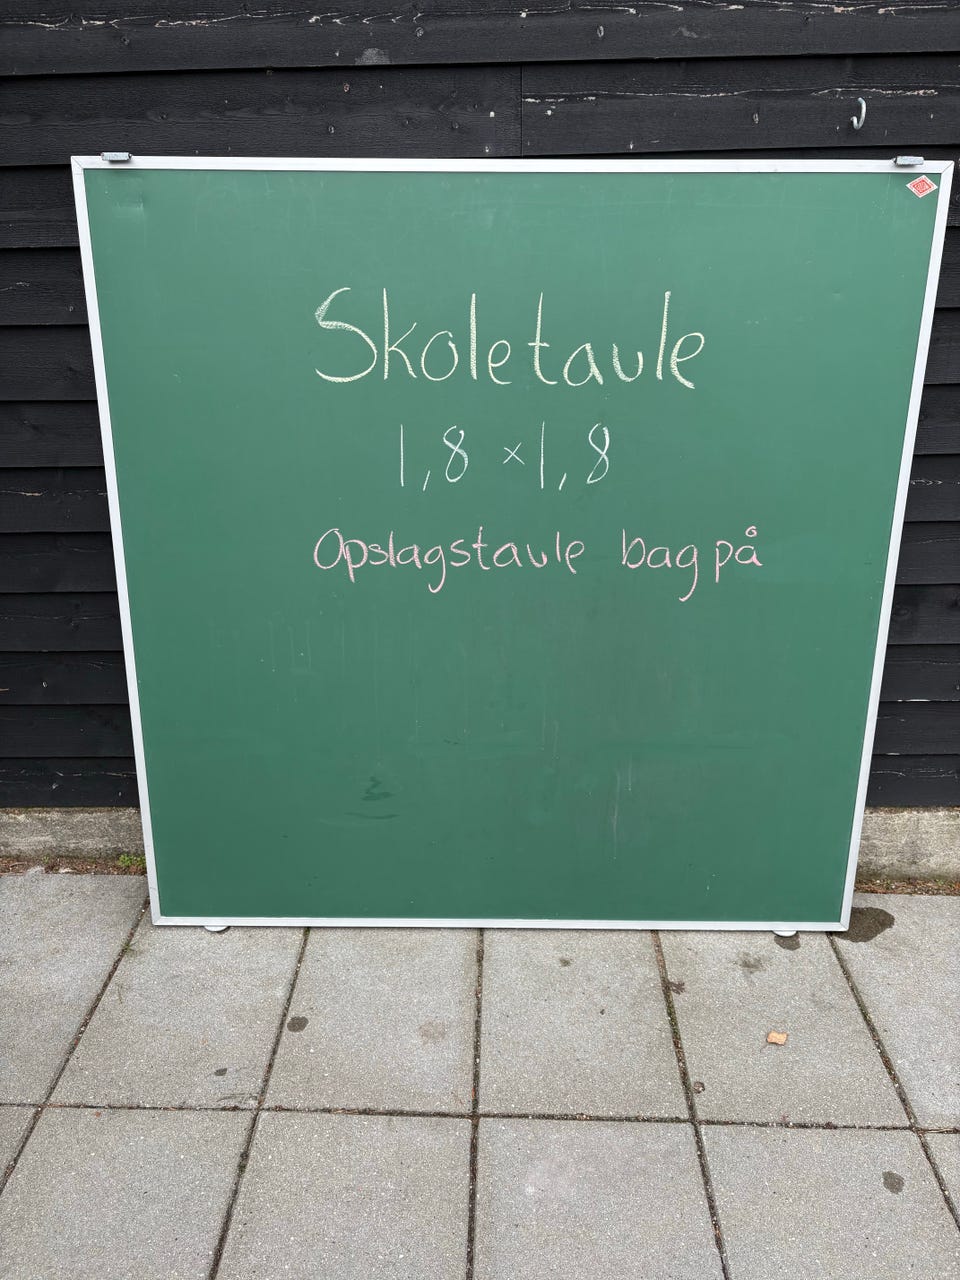 Skoletaule
1,8 × 1,8
Opslagstaule bag på